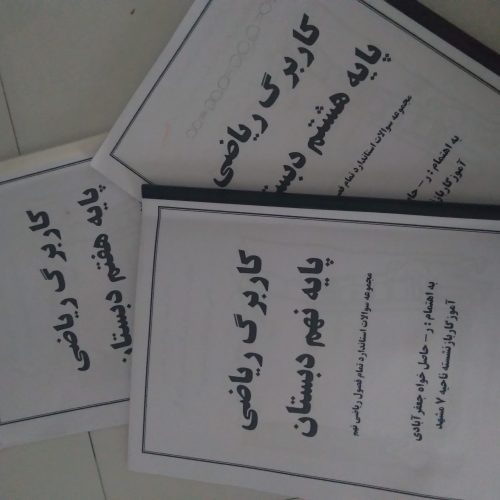 کاربرگ ریاضی
پایه نهم دبستان
مجموعه سوالات استاندارد تمام فصول ریاضی نهم
به اهتمام : ر – حاصل خواه جعفرآبادی
آموزگار بازنشسته ناحیه ۷ مشهد
کاربرگ ریاضی
پایه هشتم دبستا
مجموعه سوالات استاندارد تمام فصو
به اهتمام : ر – حاصل
آموزگار بازنشسته
کاربرگ ریاضی
پایه هفتم دبستان